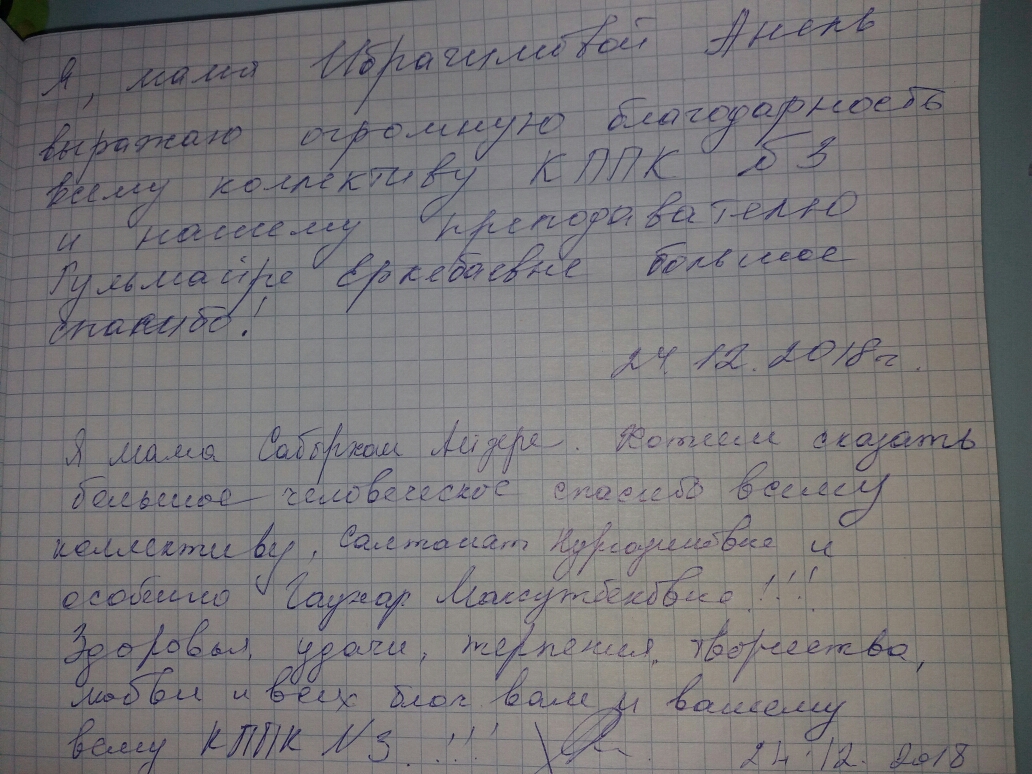 Я, мама Ибрагимовой Анель
выражаю огромную благодарность
всему коллективу КППК №3
и нашему преподавателю
Гульмайре Еркебаевне большое
спасибо!
24.12.2018г.
Я мама Сабыржан Айдере. Хотим сказать
большое человеческое спасибо всему
коллективу, Салтанат и
особенно Гаухар !!!
Здоровья, удачи, терпения, творчества,
любви и всех благ вам и вашему
всему КППК N3. !!!
24.12.2018